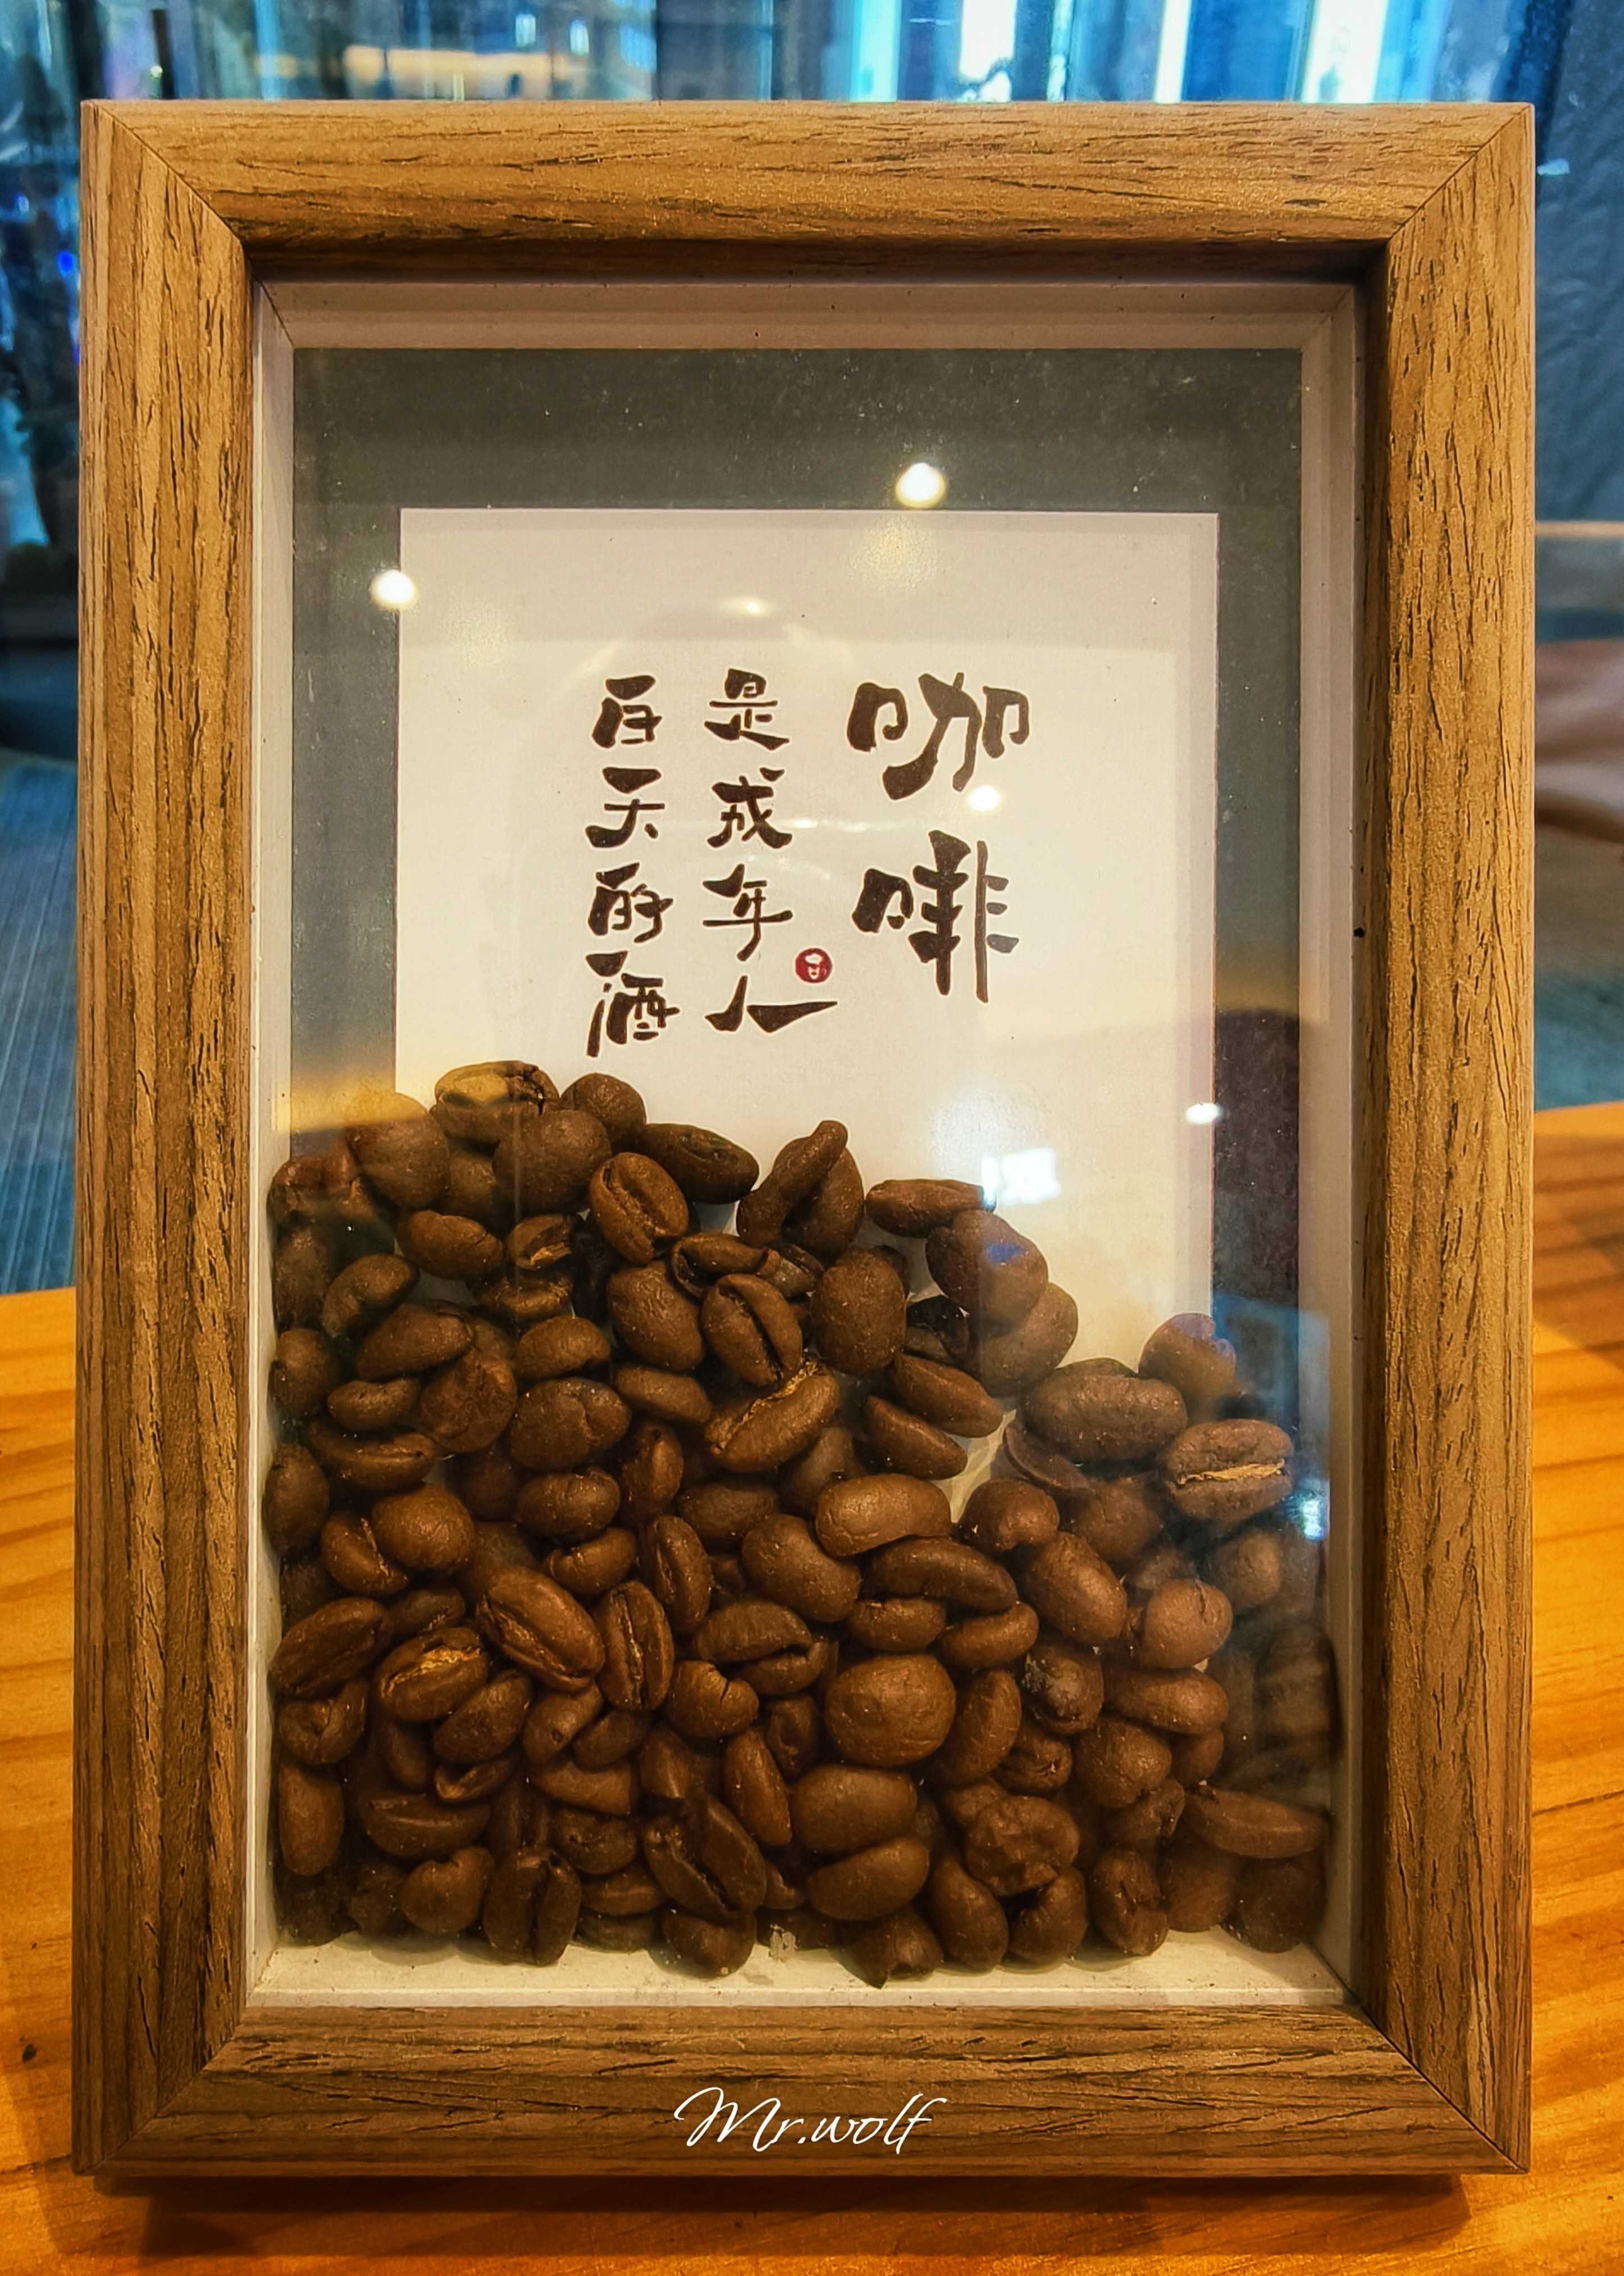 咖啡
是成年人
白天的酒
Mr.wolf